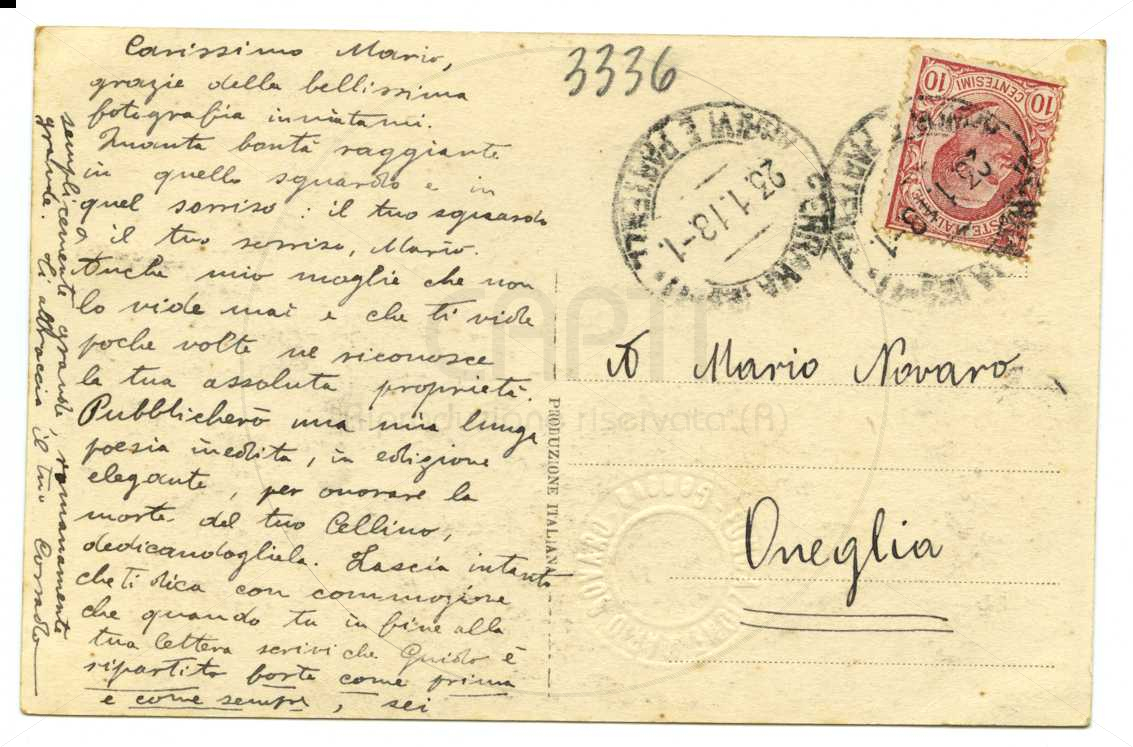 Carissimo Mario,
grazie della bellissima
fotografia inviatami.
Quanta bontà raggiante
in quello sguardo e in
quel sorriso: il tuo sguardo
o il tuo sorriso, Mario.
Anche mio moglie che non
lo vide mai e che ti vide
poche volte ne riconosce
la tua assoluta proprietà.
Pubblicherò una mia lunga
poesia inedita, in edizione
elegante, per onorare la
morte del tuo Cellino,
dedicandogliela. Lascia intanto
che ti dica con commozione
che quando tu in fine alla
tua lettera scrivi che Guido è
ripartito forte come prima
e come sempre, sei
semplicemente grande, romanamente
grande. Ti abbraccia il tuo Corrado
3336
10 CENTESIMI 10
POSTE ITALIANE
23.1.13-1
23.1.13-1
A Mario Novaro
Oneglia
PRODUZIONE ITALIANA
CAPTI
Riproduzione riservata (R)
NOVARO